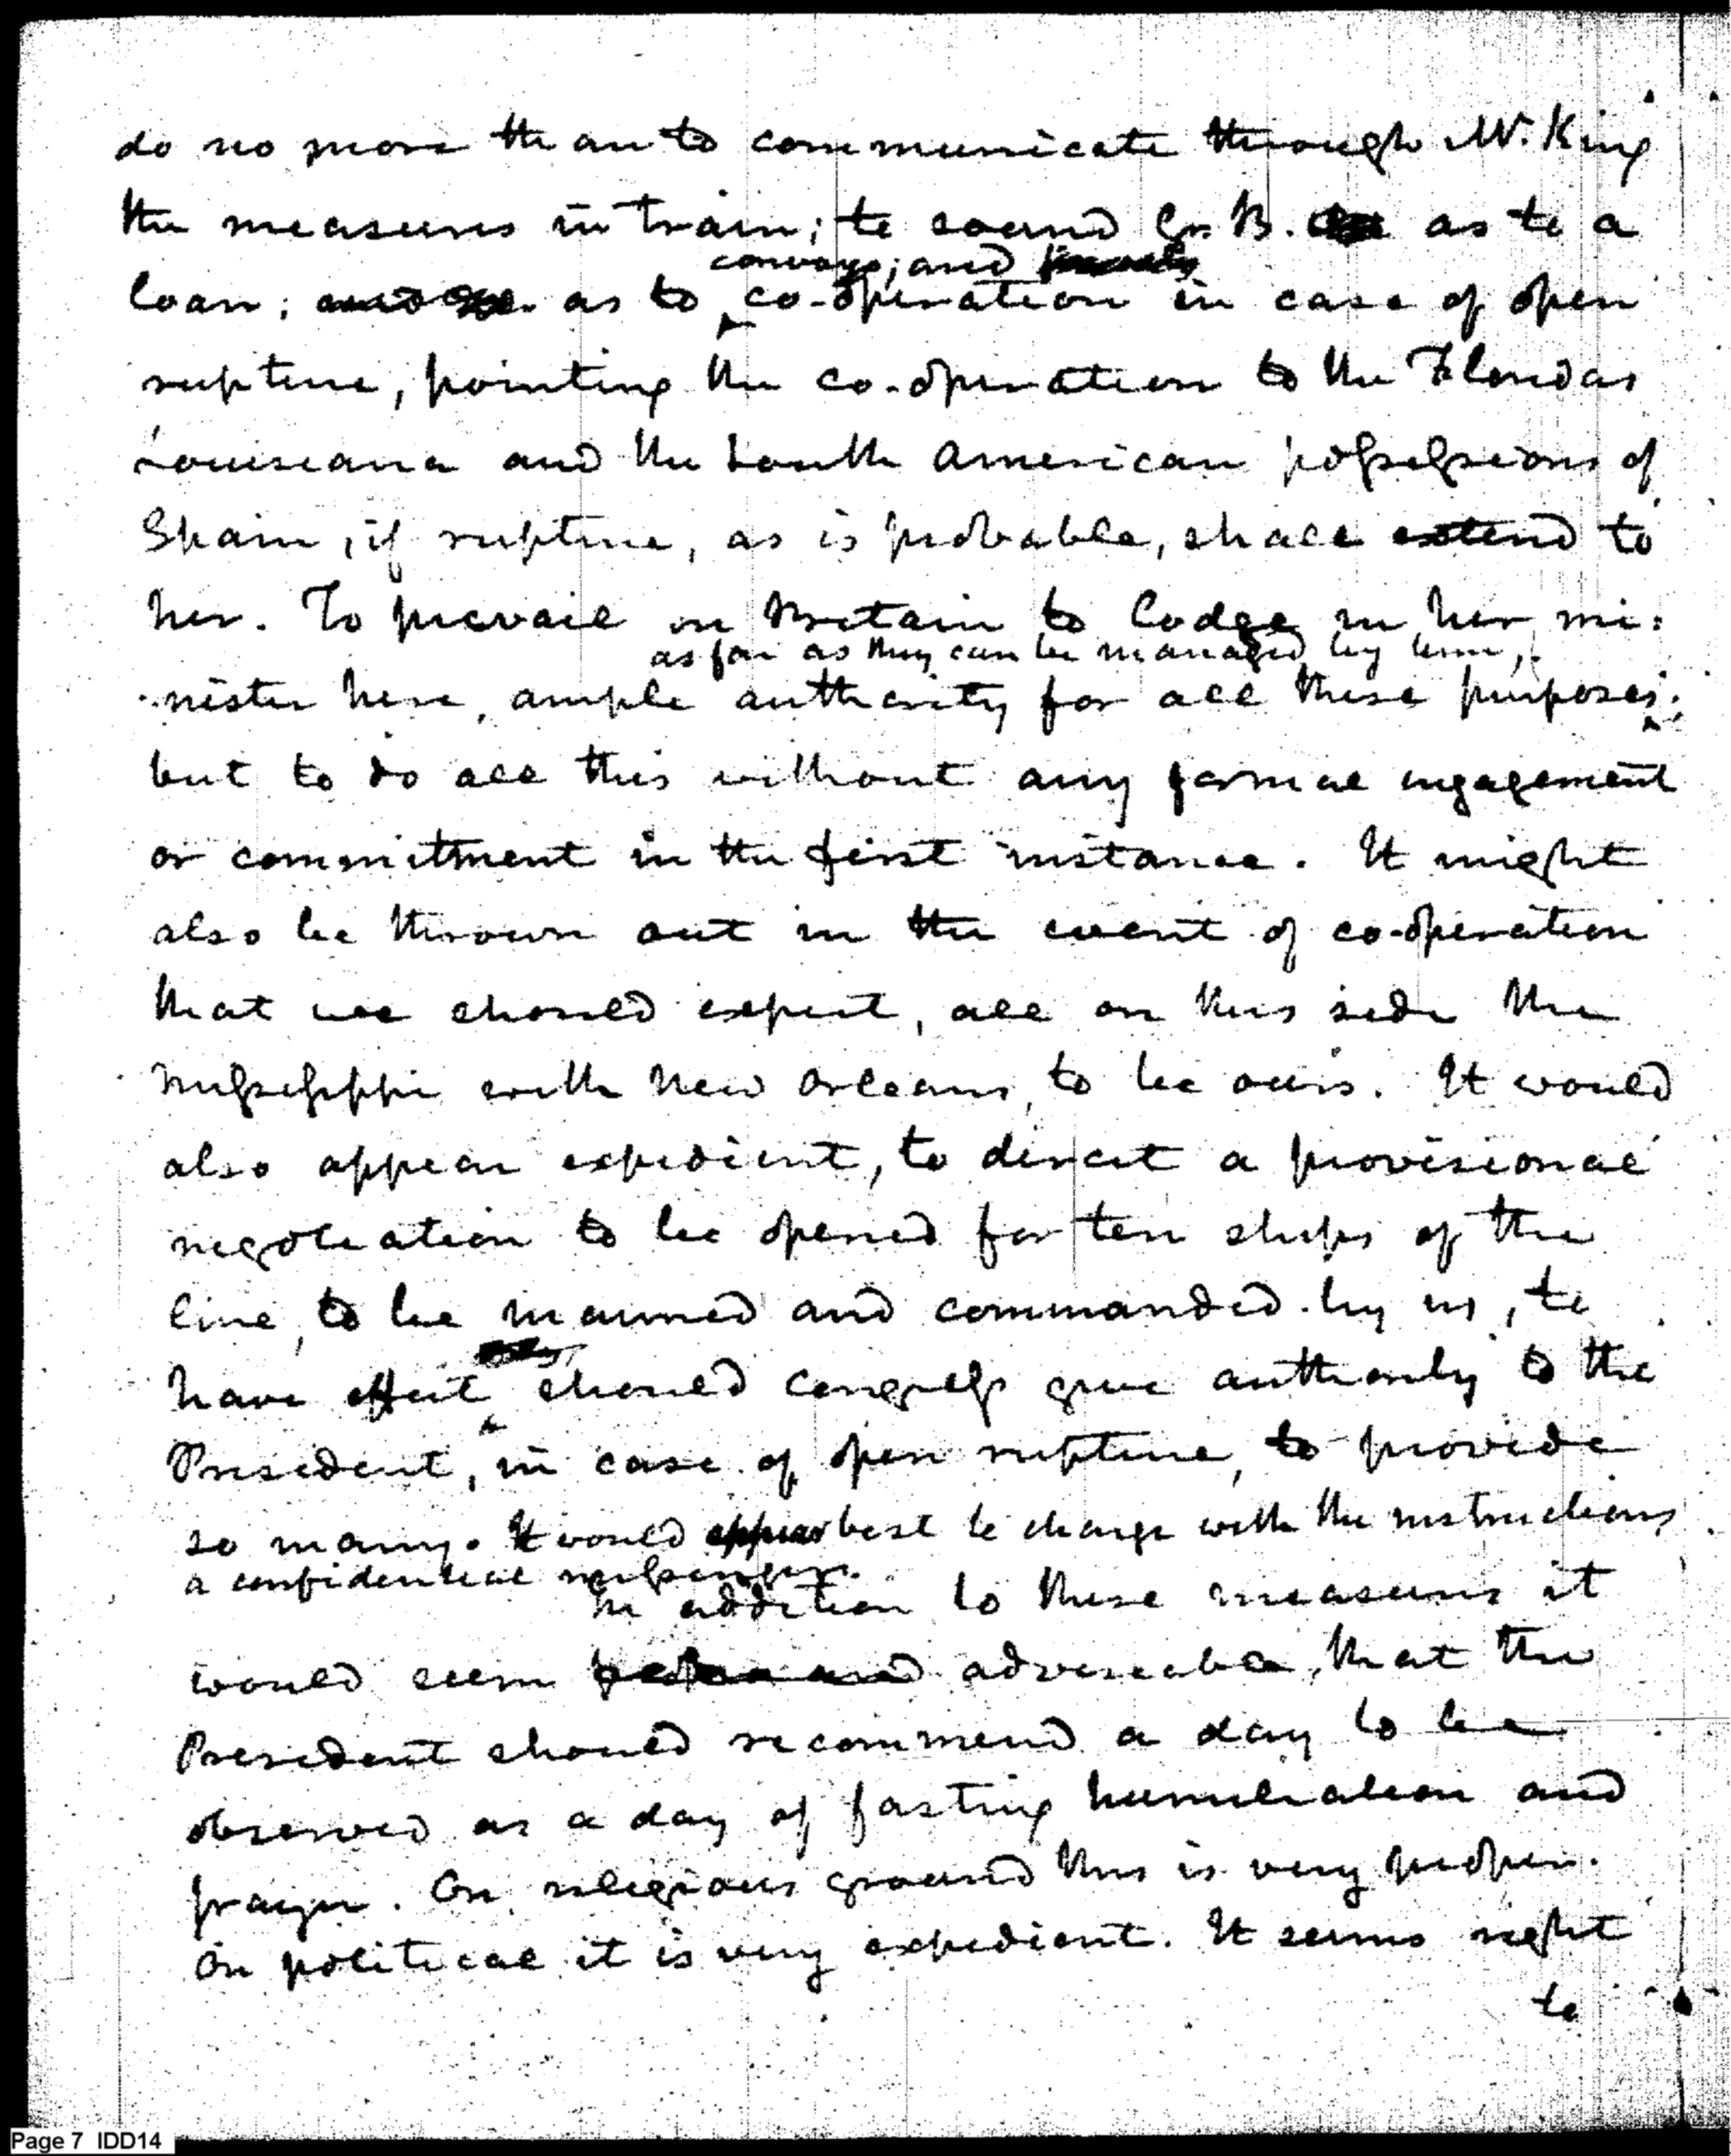 do no more than to communicate through Mr. King
the measures in train; to sound Gr. B. as to a
loan; as to
convoys; and
co-operation in case of open
rupture, pointing the co-operation to the Floridas
Louisiana and the South American possessions of
Spain, if rupture, as is probable, shall extend to
her. To prevail on Britain to lodge in her mi:
as far as they can be managed by him,
nister here, ample authority for all these purposes;
but to do all this without any formal engagement
or commitment in the first instance. It might
also be thrown out in the event of co-operation
that we should expect, all on this side the
Mississippi with New Orleans, to be ours. It would
also appear expedient, to direct a provisional
negotiation to be opened for ten ships of the
line, to be manned and commanded by us, to
have effect should congress give authority to the
President, in case of open rupture, to provide
so many. It would appear best to charge with the instructions
a confidential messenger.
In addition to these measures it
would seem adviseable, that the
President should recommend a day to be
observed as a day of fasting humiliation and
prayer. On religious ground this is very proper.
On political it is very expedient. It seems right
to
Page 7 IDD14